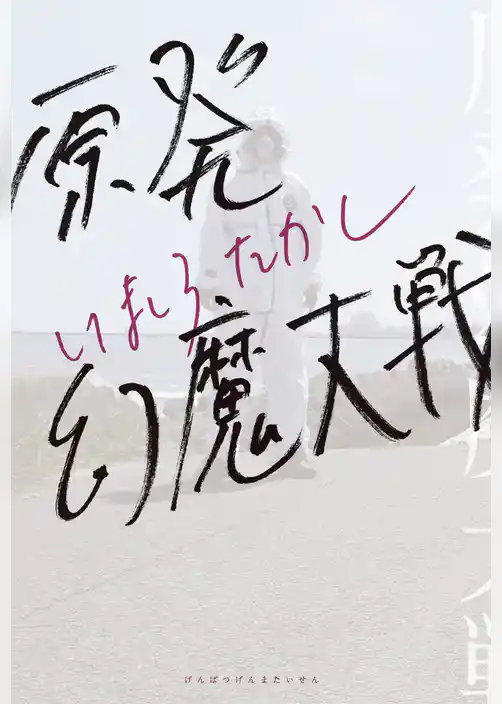 原発
いましろたかし
幻魔大戦
げんぱつげんまたいせん